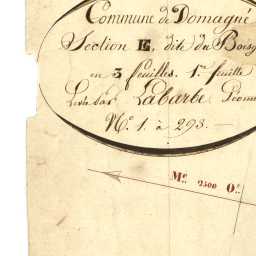 Commune de Domagné
Section E. dite du Boisg
en 3 feuilles. 1.re feuille
Levée par Labarbe Géom
N.o 1. à 293.
M.e 2500 O.e